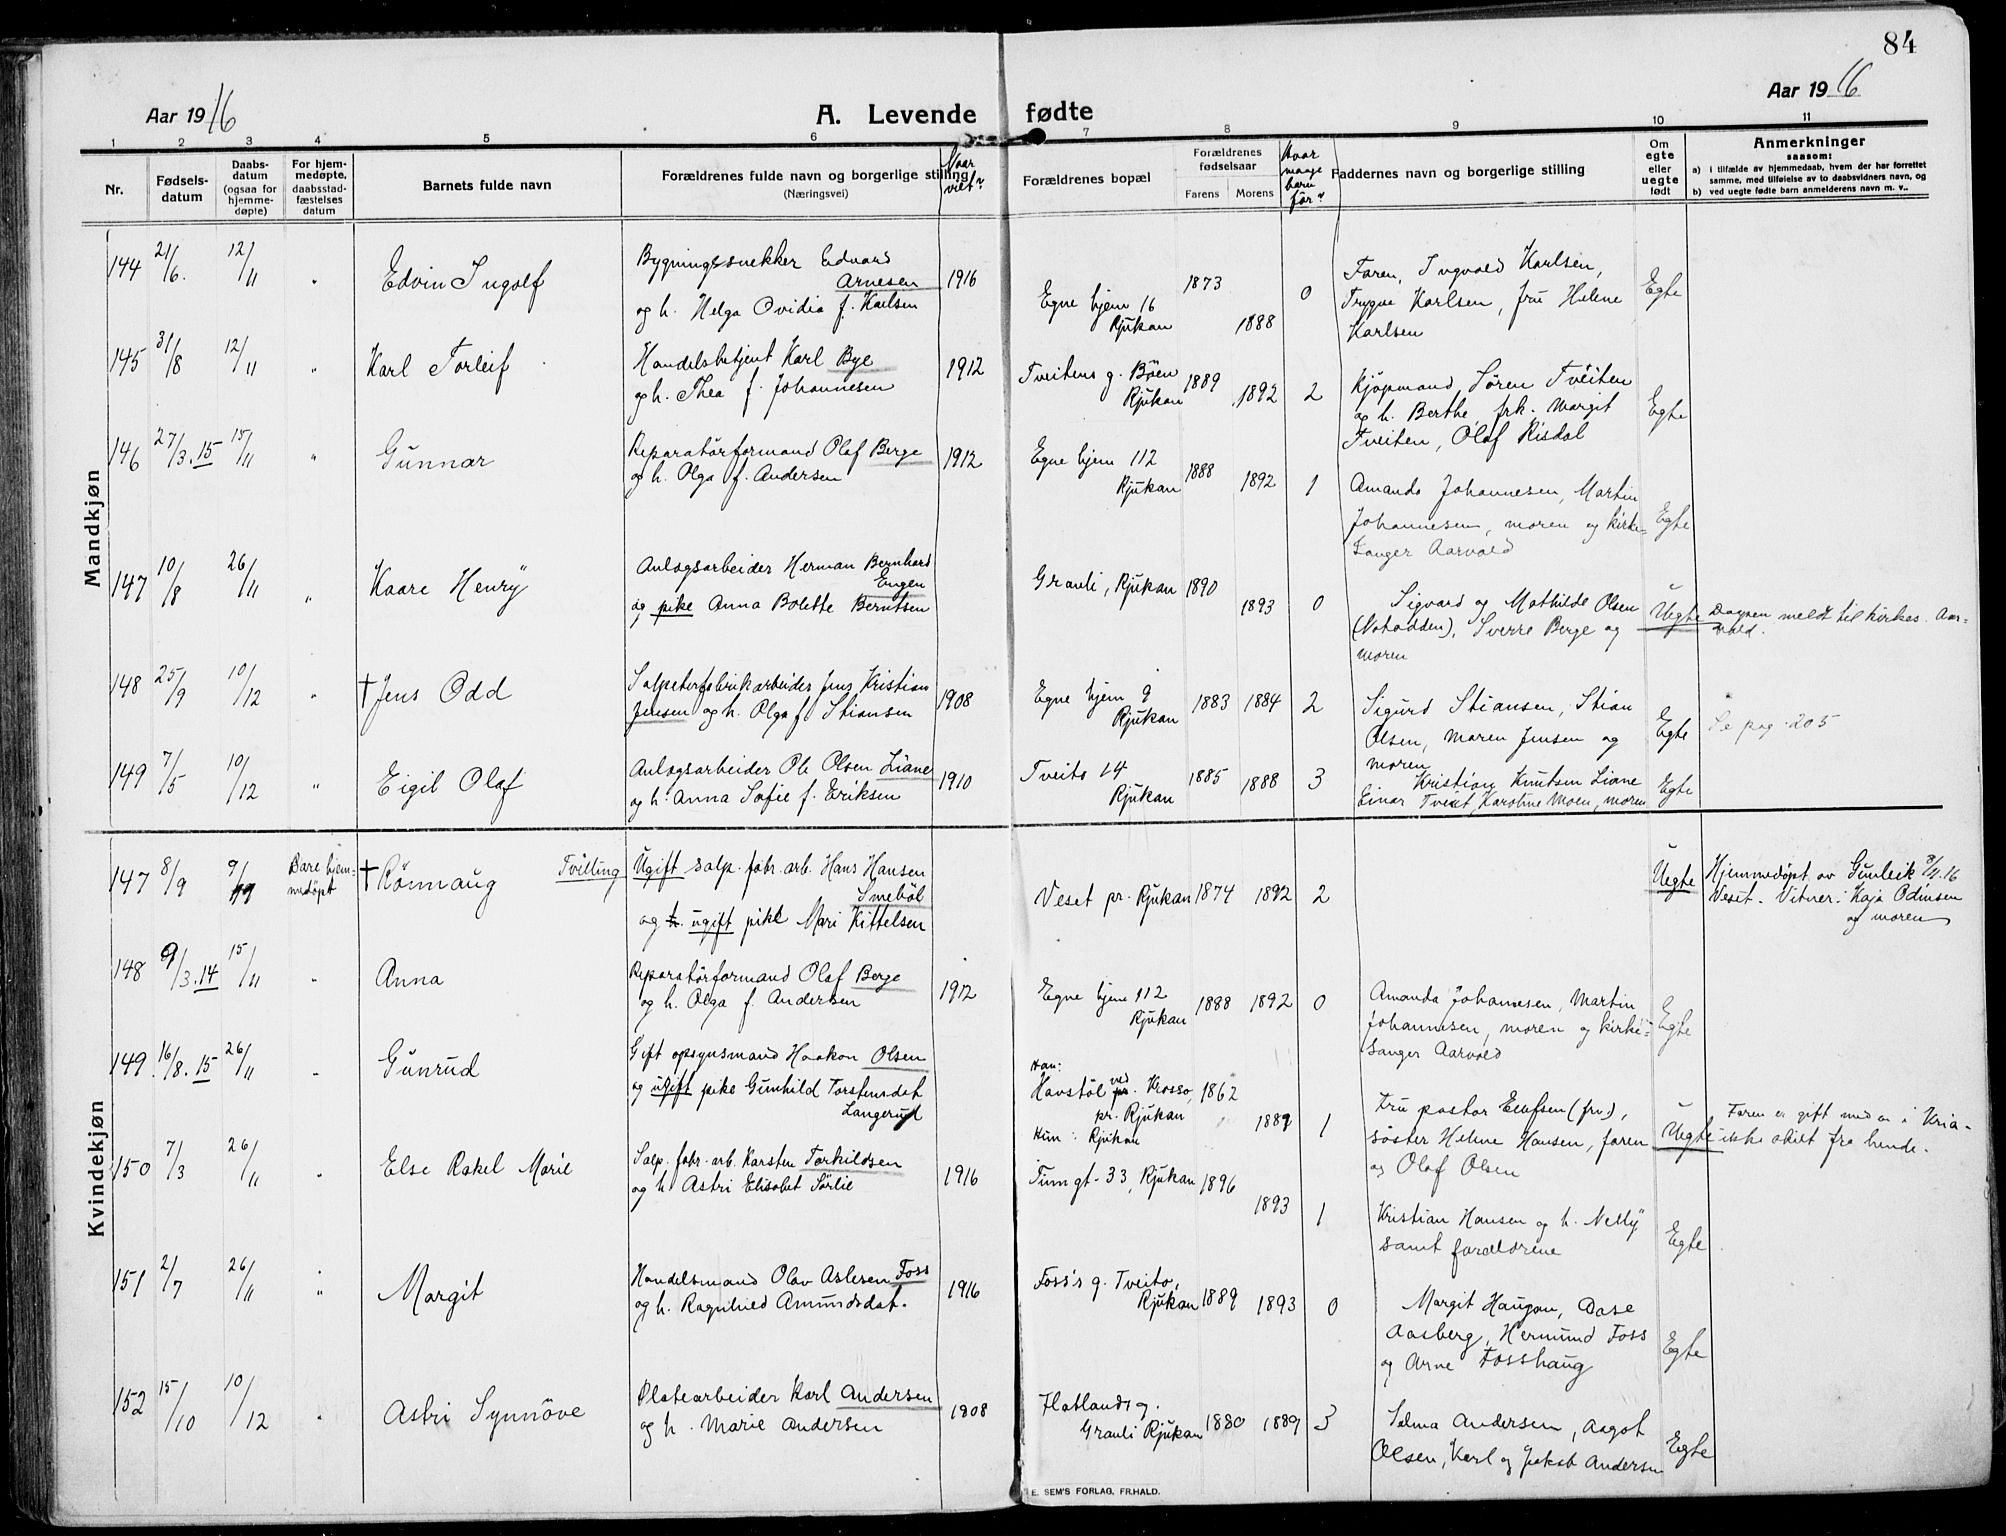 84
Aar 1916
A. Levende fødte
Aar 1916
1 2 3 4 5 6 7 8 9 10 11
Nr.
Fødsels-
datum
Daabs-
datum
(ogsaa for
hjemme-
døpte)
For hjem-
medøpte,
daabsstad-
fæstelses
datum
Barnets fulde navn
Forældrenes fulde navn og borgerlige stilling
(Næringsvei)
Naar
viet?
Forældrenes bopæl
Forældrenes
fødselsaar
Farens Morens
Hvor
mange
barn
før?
Faddernes navn og borgerlige stilling
Om
egte
eller
uegte
født
Anmerkninger
saasom:
a) i tilfælde av hjemmedaab, hvem der har forrettet
samme, med tilføielse av to daabsvidners navn, og
b) ved uegte fødte barn anmelderens navn m. v..
Mandkjøn
144 21/6. 12/11 " Edvin Ingolf
Bygningssnekker Edvard
Arnesen
og h. Helga Ovidia f. Karlsen
1916
Egne hjem 16
Rjukan
1873 1888 0
Faren, Ingvald Karlsen,
Trygve Karlsen, fru Helene
Karlsen
Egte
145 31/8 12/11 " Karl Torleif
Handelsbetjent Karl Bye
og h. Thea f. Johannesen
1912
Tveitens g. Böen
Rjukan
1889 1892 2
Kjøpmand Søren Tveiten
og h. Berthe, frk. Margit
Tveiten, Olaf Risdal
Egte
146 27/3.15 15/11 " Gunnar
Reparatörformand Olaf Berge
og h. Olga f. Andersen
1912
Egne hjem 112
Rjukan
1888 1892 1
Amanda Johannesen, Martin
Johannesen, moren og kirke-
sanger Aarvold
Egte
147 10/8 26/11 " Kaare Henry
Anlægsarbeider Herman Bernhard
Engen
og pike Anna Bolette Berntsen
Grauli, Rjukan
1890 1893 0
Sigvard og Mathilde Olsen
(Notodden), Sverre Berge og
moren
Uegte
Daapen meldt til kirkes. Aar-
vold.
148 25/9 10/12 " † Jens Odd
Salpeterfabrikarbeider Jens Kristian
Jensen og h. Olga f. Stiansen
1908
Egne hjem 9
Rjukan
1883 1884 2
Sigurd Stiansen, Stian
Olsen, Maren Jensen og
moren
Egte
Se pag. 205
149 7/5 10/12 " Eigil Olaf
Anlægsarbeider Ole Olsen Liane
og h. Anna Sofie f. Eriksen
1910
Tveito 14
Rjukan
1885 1888 3
Kristian Knutsen Liane
Einar Tveit, Karoline Moen, moren
Egte
Kvindekjøn
147 8/9 9/9 Bare hjem-
medøpt
† Rönnaug Tvilling
Ugift salp. fabr. arb. Hans Hansen
Smeböl
og h. ugift pike Mari Kittelsen
Veset pr. Rjukan
1874 1892 2
Uegte
Hjemmedöpt av Gunleik 8/9.16
Veset. Vitner: Kaja Odinsen
og moren
148 9/3.14 15/11 " Anna
Reparatörformand Olaf Berge
og h. Olga f. Andersen
1912
Egne hjem 112
Rjukan
1888 1892 0
Amanda Johannesen, Martin
Johannesen, moren og kirke-
sanger Aarvold
Egte
149 16/8.15 26/11 " Gunrud
Gift opsynsmand Haakon Olsen
og ugift pike Gunhild Torsteinsdat
Langerud
Han:
Havstöl ved Krosso,
pr. Rjukan
Hun: Rjukan
1862 1889 1
Fru pastor Ellefsen (frv.),
søster Helene Hansen, faren
og Olaf Olsen
Uegte
Faren er gift med en i Kria-
ikke skilt fra hende.
150 7/3 26/11 " Else Rakel Marie
Salp. fabr. arb. Karsten Torkildsen
og h. Astri Elisabet Sörlie
1916
Tumgt. 33, Rjukan
1896 1893 1
Kristian Hansen og h. Nelly
samt forældrene
Egte
151 2/7 26/11 " Margit
Handelsmand Olav Aslesen Foss
og h. Ragnhild Amundsdat.
1916
Foss's g. Tveito,
Rjukan
1889 1893 0
Margit Haugan, Aase
Aasberg, Hermund Foss
og Arne Fosshaug
Egte
152 15/10 10/12 " Astri Synnöve
Platearbeider Karl Andersen
og h. Marie Andersen
1908
Flatlands g.
Grauli Rjukan
1880 1889 3
Selma Andersen, Aagot
Olsen, Karl og Jakob Andersen
Egte
E. SEM'S FORLAG, FR.HALD.